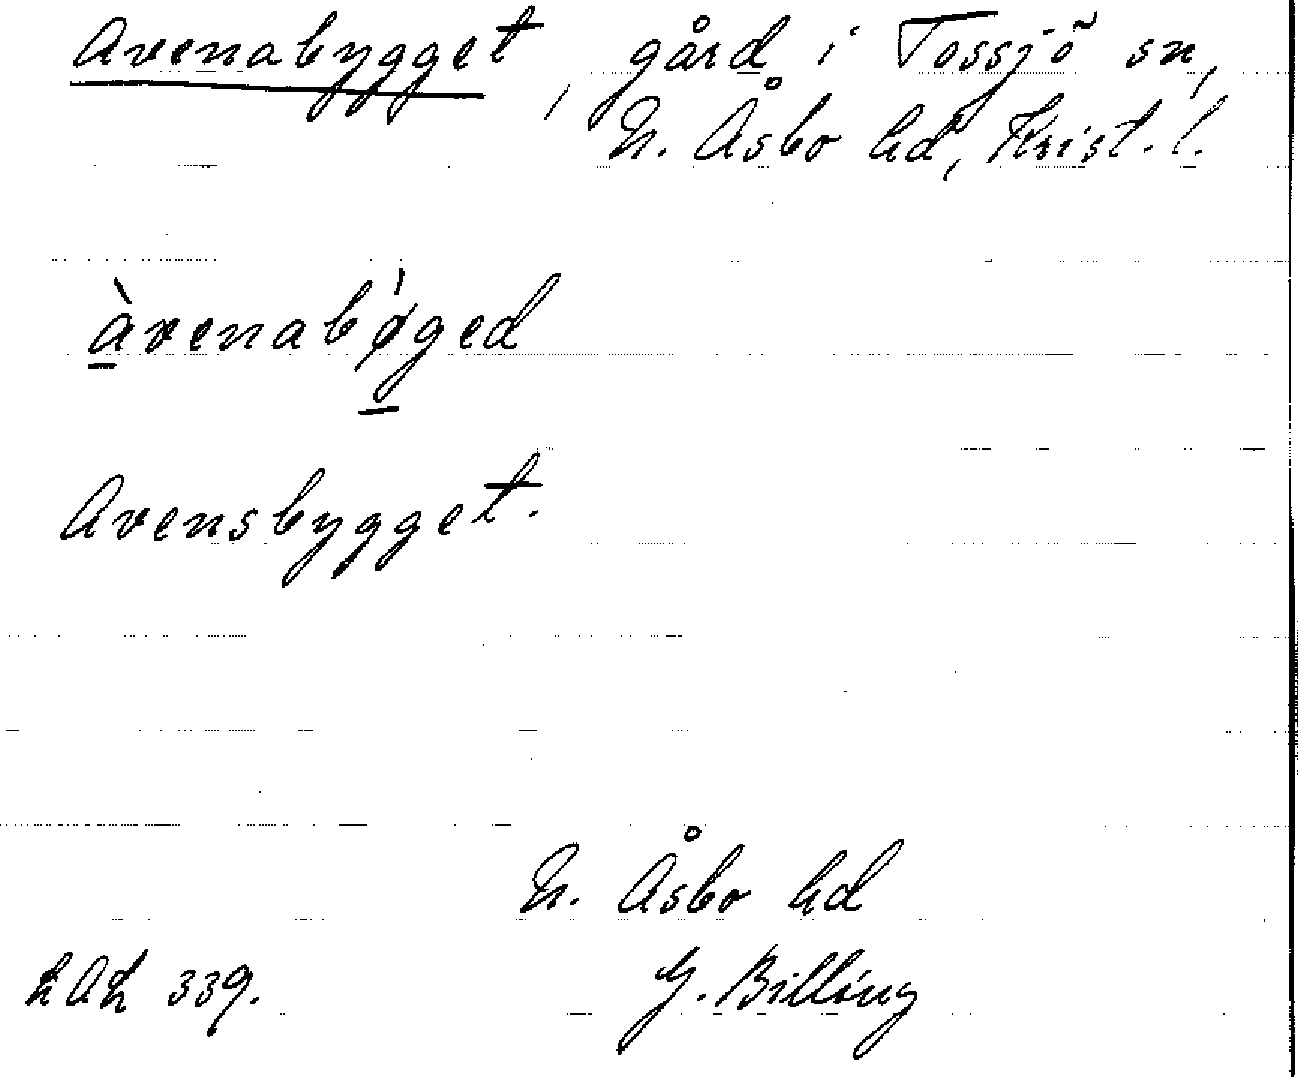 Avenabygget, gård i Tossjö sn,
N. Åsbo hd, Krist. l.
àvenabǿged
Avensbygget.
N. Åsbo hd
LAL 339. G. Billing